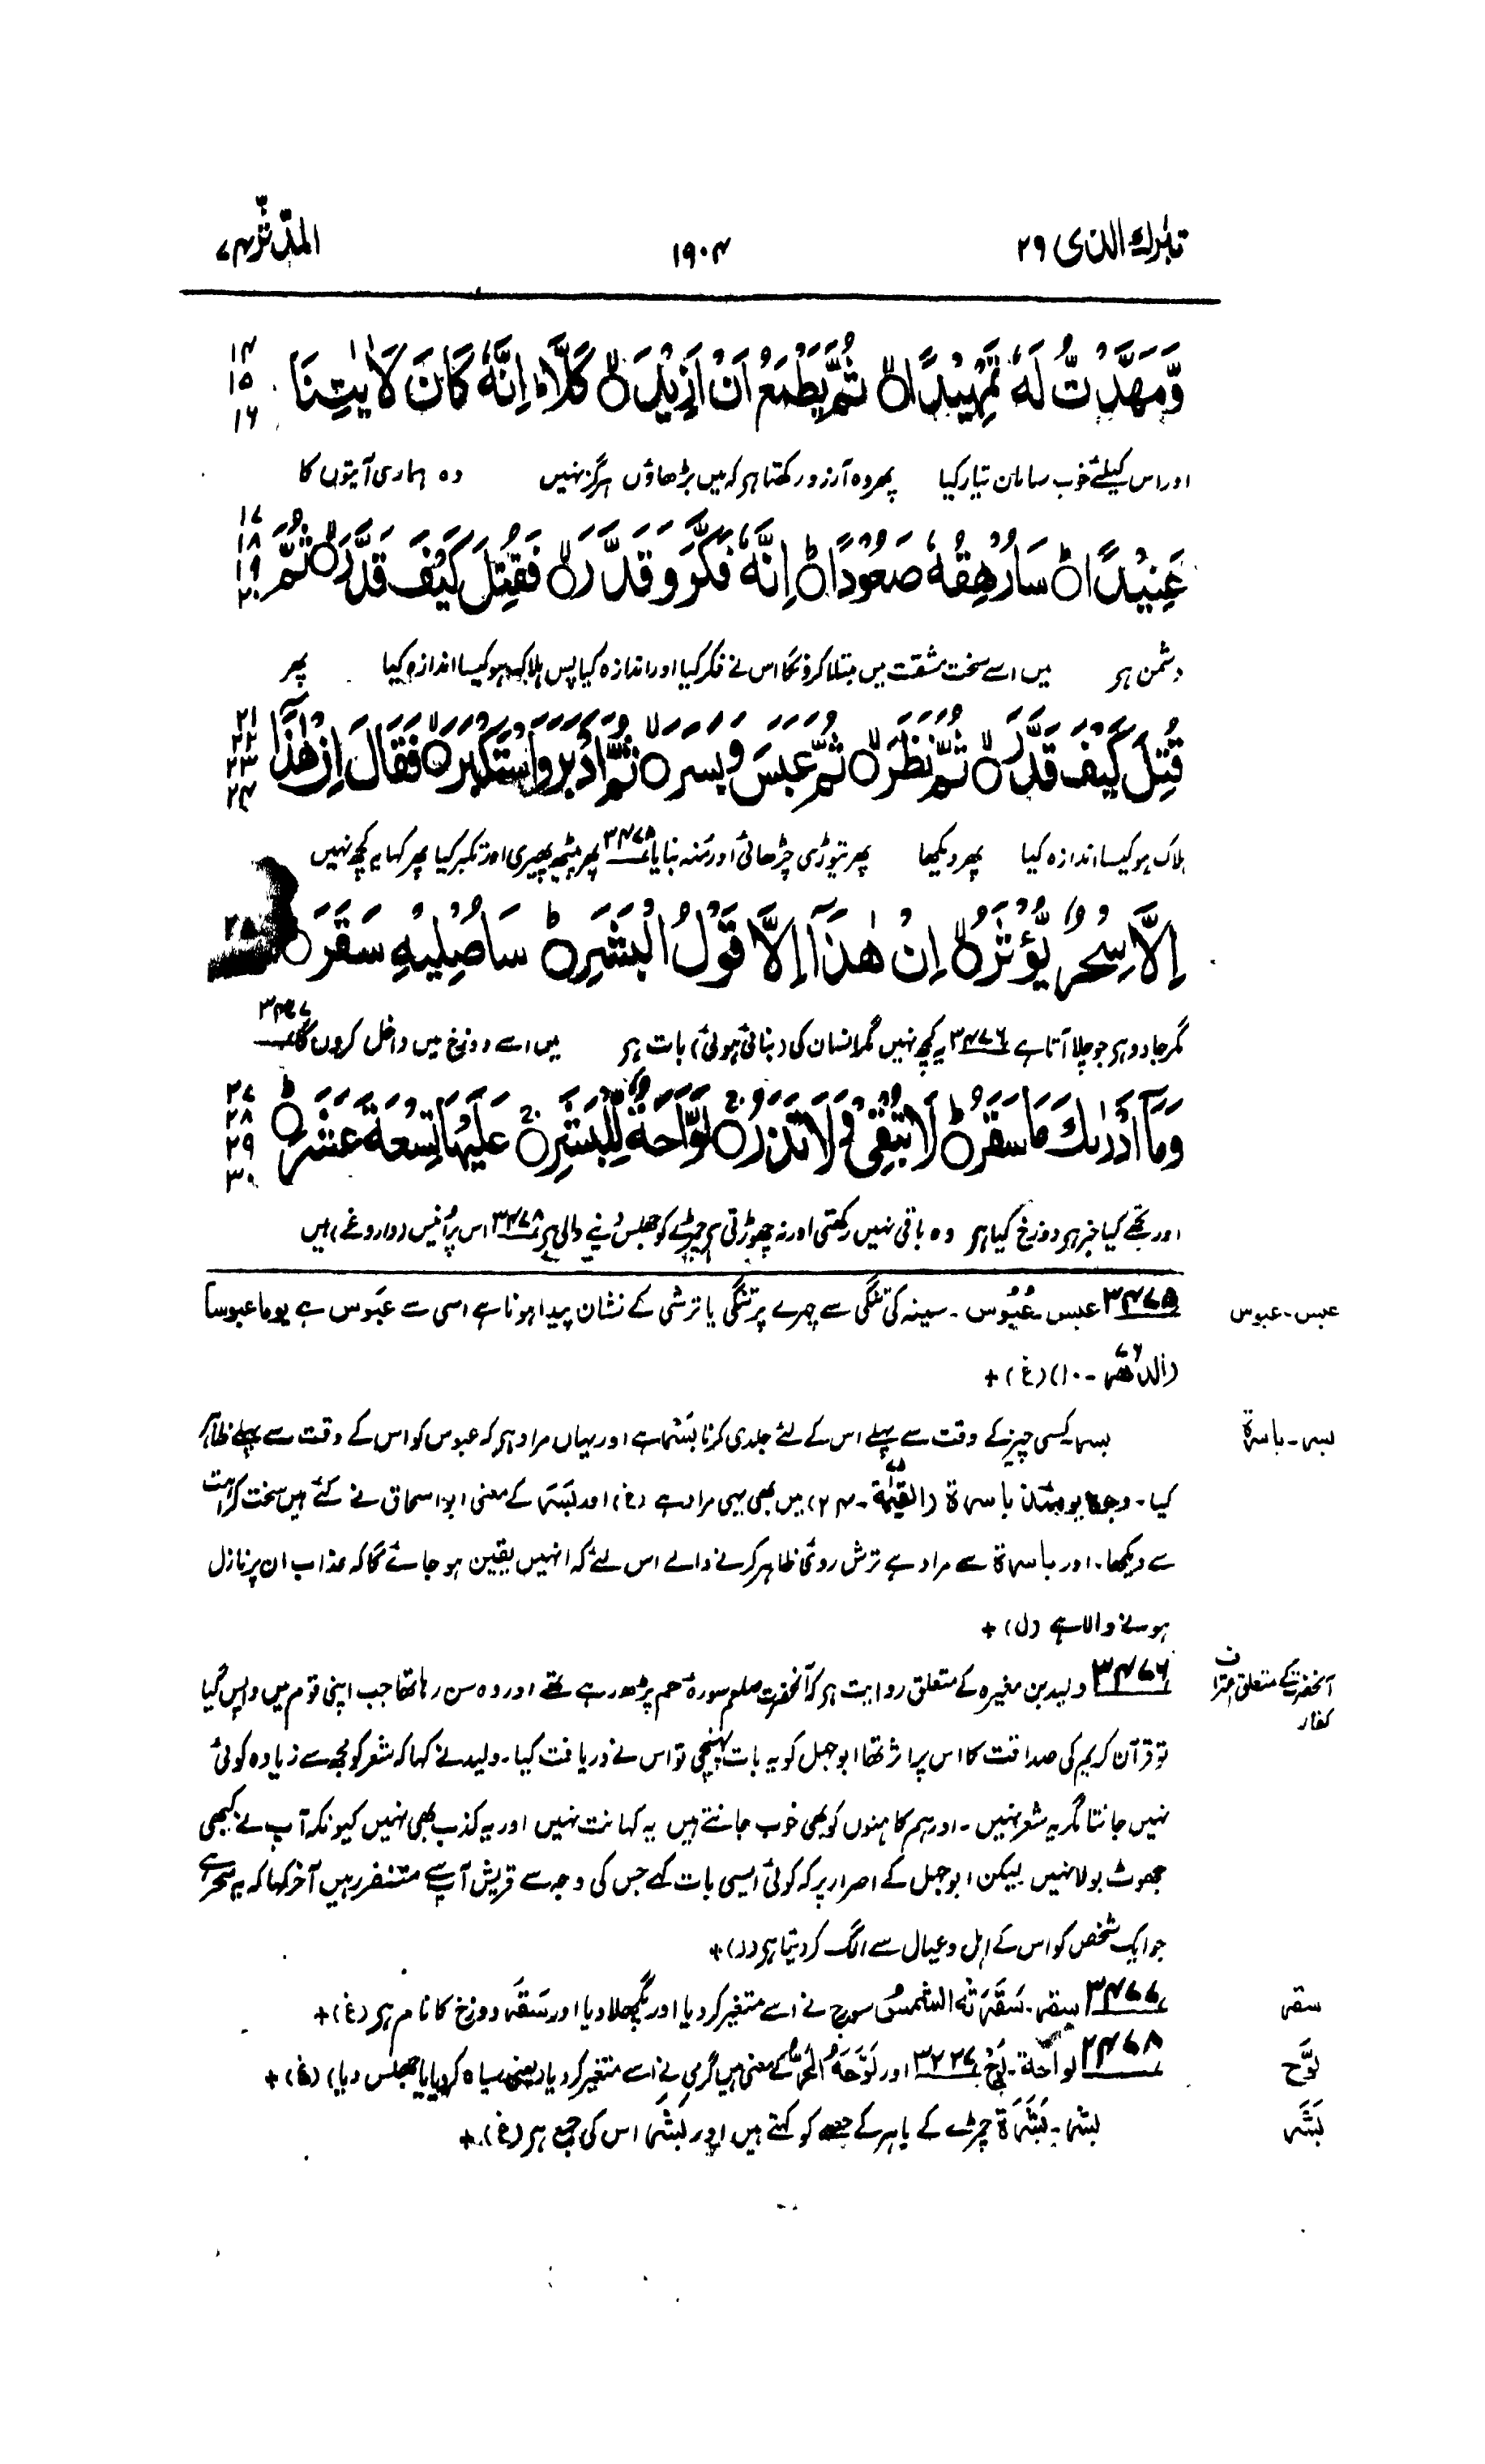 تبٰرك الذى ٢٩
١٩٠٤
المدّثّر ٧٤
وَّمَهَّدْتُّ لَهٗ تَمْهِيْدًا ۙ ثُمَّ يَطْمَعُ اَنْ اَزِيْدَ ۙ كَلَّا ؕ اِنَّهٗ كَانَ لِاٰيٰتِنَا
١٤
١٥
١٦
اور اس کیلئے خوب سامان تیار کیا پھر وہ آرزو رکھتا ہر کہ میں بڑھاؤں ہرگز نہیں وہ ہماری آیتوں کا
عَنِيْدًا ؕ سَاُرْهِقُهٗ صَعُوْدًا ؕ اِنَّهٗ فَكَّرَ وَ قَدَّرَ ۙ فَقُتِلَ كَيْفَ قَدَّرَ ۙ ثُمَّ
١٧
١٨
١٩
٢٠
دشمن ہر میں اسے سخت مشقت میں مبتلا کرونگا اس نے فکر کیا اور اندازہ کیا پس ہلاک ہو کیسا اندازہ کیا پھر
قُتِلَ كَيْفَ قَدَّرَ ۙ ثُمَّ نَظَرَ ۙ ثُمَّ عَبَسَ وَ بَسَرَ ۙ ثُمَّ اَدْبَرَ وَاسْتَكْبَرَ ۙ فَقَالَ اِنْ هٰذَآ
٢١
٢٢
٢٣
٢٤
ہلاک ہو کیسا اندازہ کیا پھر دیکھا پھر تیوڑی چڑھائی اور منہ بنایا ٣٤٧٥ پھر پیٹھ پھیری اور تکبر کیا پھر کہا یہ کچھ نہیں
اِلَّا سِحْرٌ يُّؤْثَرُ ۙ اِنْ هٰذَآ اِلَّا قَوْلُ الْبَشَرِ ؕ سَاُصْلِيْهِ سَقَرَ
مگر جادو ہر جو چلا آتا ہے ٣٤٧٦ یہ کچھ نہیں مگر انسان کی (بنائی ہوئی) بات ہر میں اسے دوزخ میں داخل کروں گا ٣٤٧٧
وَمَآ اَدْرٰىكَ مَا سَقَرُ ؕ لَا تُبْقِيْ وَ لَا تَذَرُ ۚ لَوَّاحَةٌ لِّلْبَشَرِ ۚ عَلَيْهَا تِسْعَةَ عَشَرَ ؕ
٢٧
٢٨
٢٩
٣٠
اور تجھے کیا خبر ہر دوزخ کیا ہر وہ باقی نہیں رکھتی اور نہ چھوڑتی ہر چمڑے کو جھلس دینے والی ہر ٣٤٧٨ اس پر اُنیس (داروغے) ہیں
عبس - عبوس
٣٤٧٥ عبس عُبُوس ۔ سینہ کی تنگی سے چہرے پر تنگی یا ترشی کے نشان پیدا ہونا ہے اسی سے عَبُوس ہے یوما عبوسا
(الدھر ٧٦ - ١٠) (غ) +
بسر - باسرة
بسر - کسی چیز کے وقت سے پہلے اس کے لئے جلدی کرنا بَسْر ہے اور یہاں مراد ہر کہ عبوس کو اس کے وقت سے پہلے ظاہر
کیا۔ وجوہ یومئذ باسرة (القیٰمة ٧٥ - ٢٤) میں بھی یہی مراد ہے (غ) اور بَسَرَ کے معنی ابو اسحاق نے کئے ہیں سخت کراہت
سے دیکھا۔ اور باسرة سے مراد ہے ترش روئی ظاہر کرنے والے اس لئے کہ انہیں یقین ہو جائے گا کہ عذاب ان پر نازل
ہونے والا ہے (ل) +
آنحضرت کے متعلق اعتراف
کفار
٣٤٧٦ ولید بن مغیرہ کے متعلق روایت ہر کہ آنحضرت صلعم سورۂ حم پڑھ رہے تھے اور وہ سن رہا تھا جب اپنی قوم میں واپس گیا
تو قرآن کریم کی صداقت کا اس پر اثر تھا ابو جہل کو یہ بات پہنچی تو اس نے دریافت کیا۔ ولید نے کہا کہ شعر کو مجھ سے زیادہ کوئی
نہیں جانتا مگر یہ شعر نہیں ۔ اور ہم کاہنوں کو بھی خوب جانتے ہیں یہ کہانت نہیں اور یہ کذب بھی نہیں کیونکہ آپ نے کبھی
جھوٹ بولا نہیں لیکن ابوجہل کے اصرار پر کہ کوئی ایسی بات کہے جس کی وجہ سے قریش آپ سے متنفر رہیں آخر کہا کہ یہ سحر ہے
جو ایک شخص کو اس کے اہل و عیال سے الگ کر دیتا ہر (ر) +
سقر
٣٤٧٧ سقر - سَقَرَتْهُ الشمسُ سورج نے اسے متغیر کر دیا اور پگھلا دیا اور سَقَر دوزخ کا نام ہر (غ) +
لَوَّح
٣٤٧٨ لواحة - لَوْح ٣٢٢٧ اور لَوَّحَهُ الحرُّ کے معنی ہیں گرمی نے اسے متغیر کر دیا (یعنی سیاہ کر دیا یا جھلس دیا) (غ) +
بَشَر
بشر - بَشَرَة چمڑے کے باہر کے حصہ کو کہتے ہیں اور بَشَر اس کی جمع ہر (غ) +